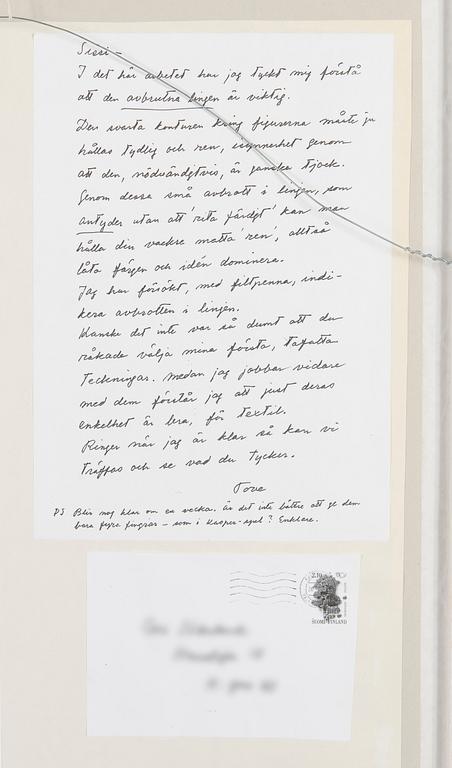 Sissi –
I det här arbetet har jag tyckt mig förstå
att den avbrutna lingen är viktig.
Den svarta konturen kring figurerna måste ju
hållas tydlig och ren, isynnerhet genom
att den, nödvändgtvis, är ganska tjock.
Genom dessa små avbrott i lingen, som
antyder utan att 'rita färdgt' kan man
hålla din vackra matta 'ren', alltså
låta färgen och idén dominera.
Jag har försökt, med filtpenna, indi-
kera avbrotten i lingen.
Kanske det inte var så dumt att du
råkade välja mina första, tafatta
teckningar. Medan jag jobbar vidare
med dem förstår jag att just deras
enkelhet är bra, för textil.
Ringer när jag är klar så kan vi
träffas och se vad du tycker.
Tove
PS Blir nog klar om en vecka. Är det inte bättre att ge dem
bara fyra fingrar – som i Kasper-spel? Enklare.
2,10
SUOMI FINLAND